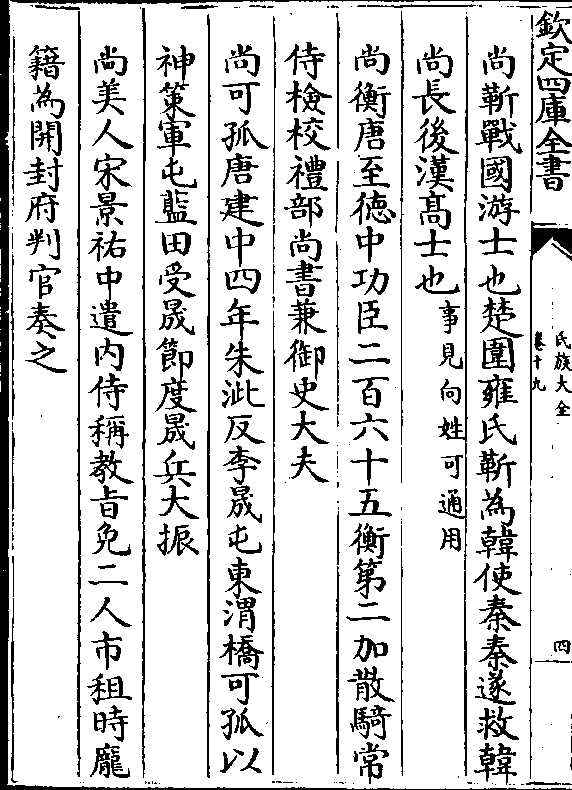 欽定四庫全書
氏族大全
卷十九
四
尚靳戰國游士也楚圍雍氏靳為韓使秦秦遂救韓
尚長後漢髙士也事見向姓可通用
尚衡唐至徳中功臣二百六十五衡第二加散騎常
侍檢校禮部尚書兼御史大夫
尚可孤唐建中四年朱泚反李晟屯東渭橋可孤以
神策軍屯藍田受晟節度晟兵大振
尚美人宋景祐中遣内侍稱教㫖免二人市租時龎
籍為開封府判官奏之